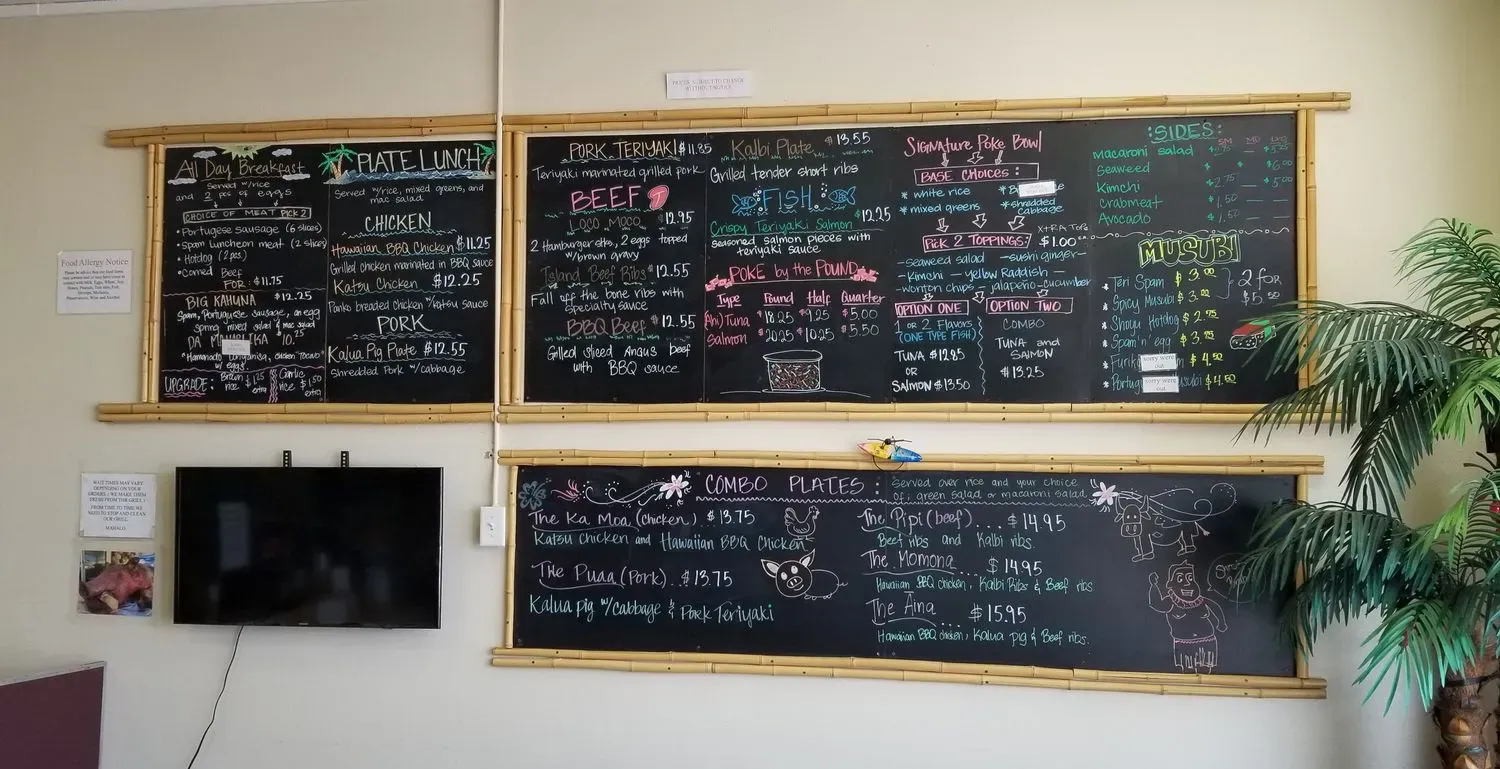 PRICES SUBJECT TO CHANGE
WITHOUT NOTICE
All Day Breakfast
Served w/rice
and 2 pcs of eggs
CHOICE OF MEAT PICK 2
• Portuguese sausage (6 slices)
• Spam luncheon meat (2 slices)
• Hotdog (2pcs)
• Corned Beef
FOR: $11.75
BIG KAHUNA $12.25
Spam, Portuguese sausage, an egg
spring mixed salad & mac salad
$10.25
w/ eggs
UPGRADE: Brown rice $1.25 extra
Garlic rice $1.50 extra
PLATE LUNCH
Served w/rice, mixed greens, and
mac salad
CHICKEN
Hawaiian BBQ Chicken $11.25
Grilled chicken marinated in BBQ sauce
Katsu Chicken $12.25
Panko breaded chicken w/katsu sauce
PORK
Kalua Pig Plate $12.55
Shredded Pork w/cabbage
PORK TERIYAKI $11.35
Teriyaki marinated grilled pork
BEEF
LOCO MOCO $12.95
2 Hamburger stks, 2 eggs topped
w/brown gravy
Island Beef Ribs $12.55
Fall off the bone ribs with
specialty sauce
BBQ Beef $12.55
Grilled sliced Angus beef
with BBQ sauce
Kalbi Plate $13.55
Grilled tender short ribs
FISH
Crispy Teriyaki Salmon $12.25
seasoned salmon pieces with
teriyaki sauce
POKE by the POUND
Type Pound Half Quarter
(Ahi) Tuna $18.25 $9.25 $5.00
Salmon $20.25 $10.25 $5.50
Signature Poke Bowl
BASE CHOICES:
* white rice
* mixed greens
* shredded cabbage
Pick 2 TOPPINGS:
XTRA Tops $1.00
-Seaweed salad -sushi ginger-
-Kimchi - yellow Raddish -
-wonton chips - jalapeño-cucumber
OPTION ONE
1 or 2 Flavors
(ONE TYPE FISH)
TUNA $12.95
OR
SALMON $13.50
OPTION TWO
COMBO
TUNA and
SALMON
$13.25
:SIDES:
SM MD LRG
macaroni salad
Seaweed $6.00
Kimchi $2.75 — $5.00
Crabmeat $1.50 — —
Avocado 1.50 — —
MUSUBI
* Teri Spam $3.00
* Spicy Musubi $3.00
2 for
$5.50
* Shoyu Hotdog $2.75
* Spam 'n' egg $3.75
* Furik $4.50
sorry were
out
* Portug usubi $4.50
sorry were
out
Food Allergy Notice
WAIT TIMES MAY VARY
DEPENDING ON YOUR
ORDERS / WE MAKE THEM
FRESH FROM THE GRILL!
FROM TIME TO TIME WE
NEED TO STOP AND CLEAN
OUR GRILL.
MAHALO
COMBO PLATES:
Served over rice and your choice
of: green salad or macaroni salad
The Ka Moa (chicken). $13.75
Katsu chicken and Hawaiian BBQ Chicken
The Puaa (Pork). $13.75
Kalua pig w/Cabbage & Pork Teriyaki
The Pipi (beef) ... $14.95
Beef ribs and Kalbi ribs.
The Momona .... $14.95
Hawaiian BBQ chicken, Kalbi Ribs & Beef ribs
The Āina .... $15.95
Hawaiian BBQ chicken, Kalua pig & Beef ribs.